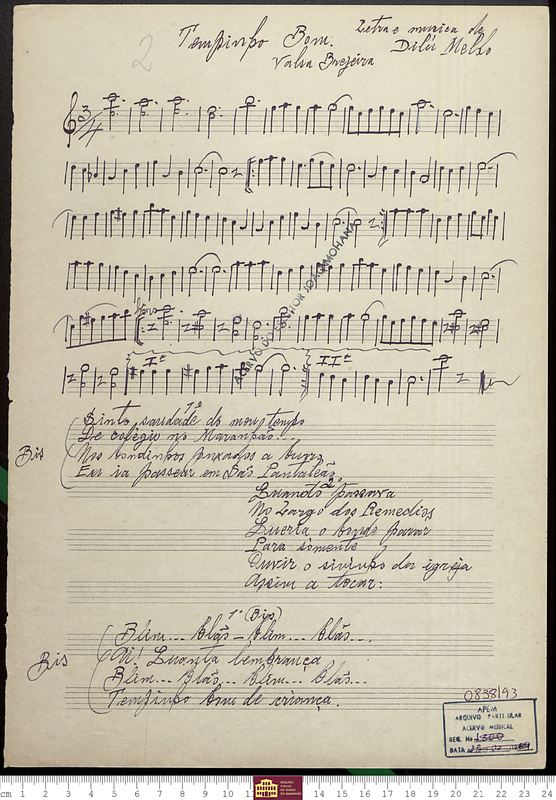 2
Tempinho Bom.
Letra e musica de
Dilú Mello
Valsa Brejeira
3/4
ACERVO DO JOÃO MOHANA
Iª
IIª
1ª
Sinto saudade do meu tempo
De colégio no Maranhão...
Nos bondinhos puxados a burro
Bis
Eu ia passear em São Pantaleão
2ª
Quando passava
No Largo dos Remedios,
Queria o burro parar
Para sòmente
Ouvir o sininho da igreja
Assim a tocar:
1ª (Bis)
Blim... Blão - Blim... Blão...
Bis
Ai! Quanta lembrança
Blim... Blão... Blim... Blão...
Tempinho bom de criança.
0838/93
APEM
ARQUIVO PARTICULAR
ACERVO MUSICAL
REG. No 1300
DATA
cm 1 2 3 4 5 6 7 8 9 10 11
ARQUIVO PÚBLICO DO ESTADO DO MARANHÃO
14 15 16 17 18 19 20 21 22 23 24